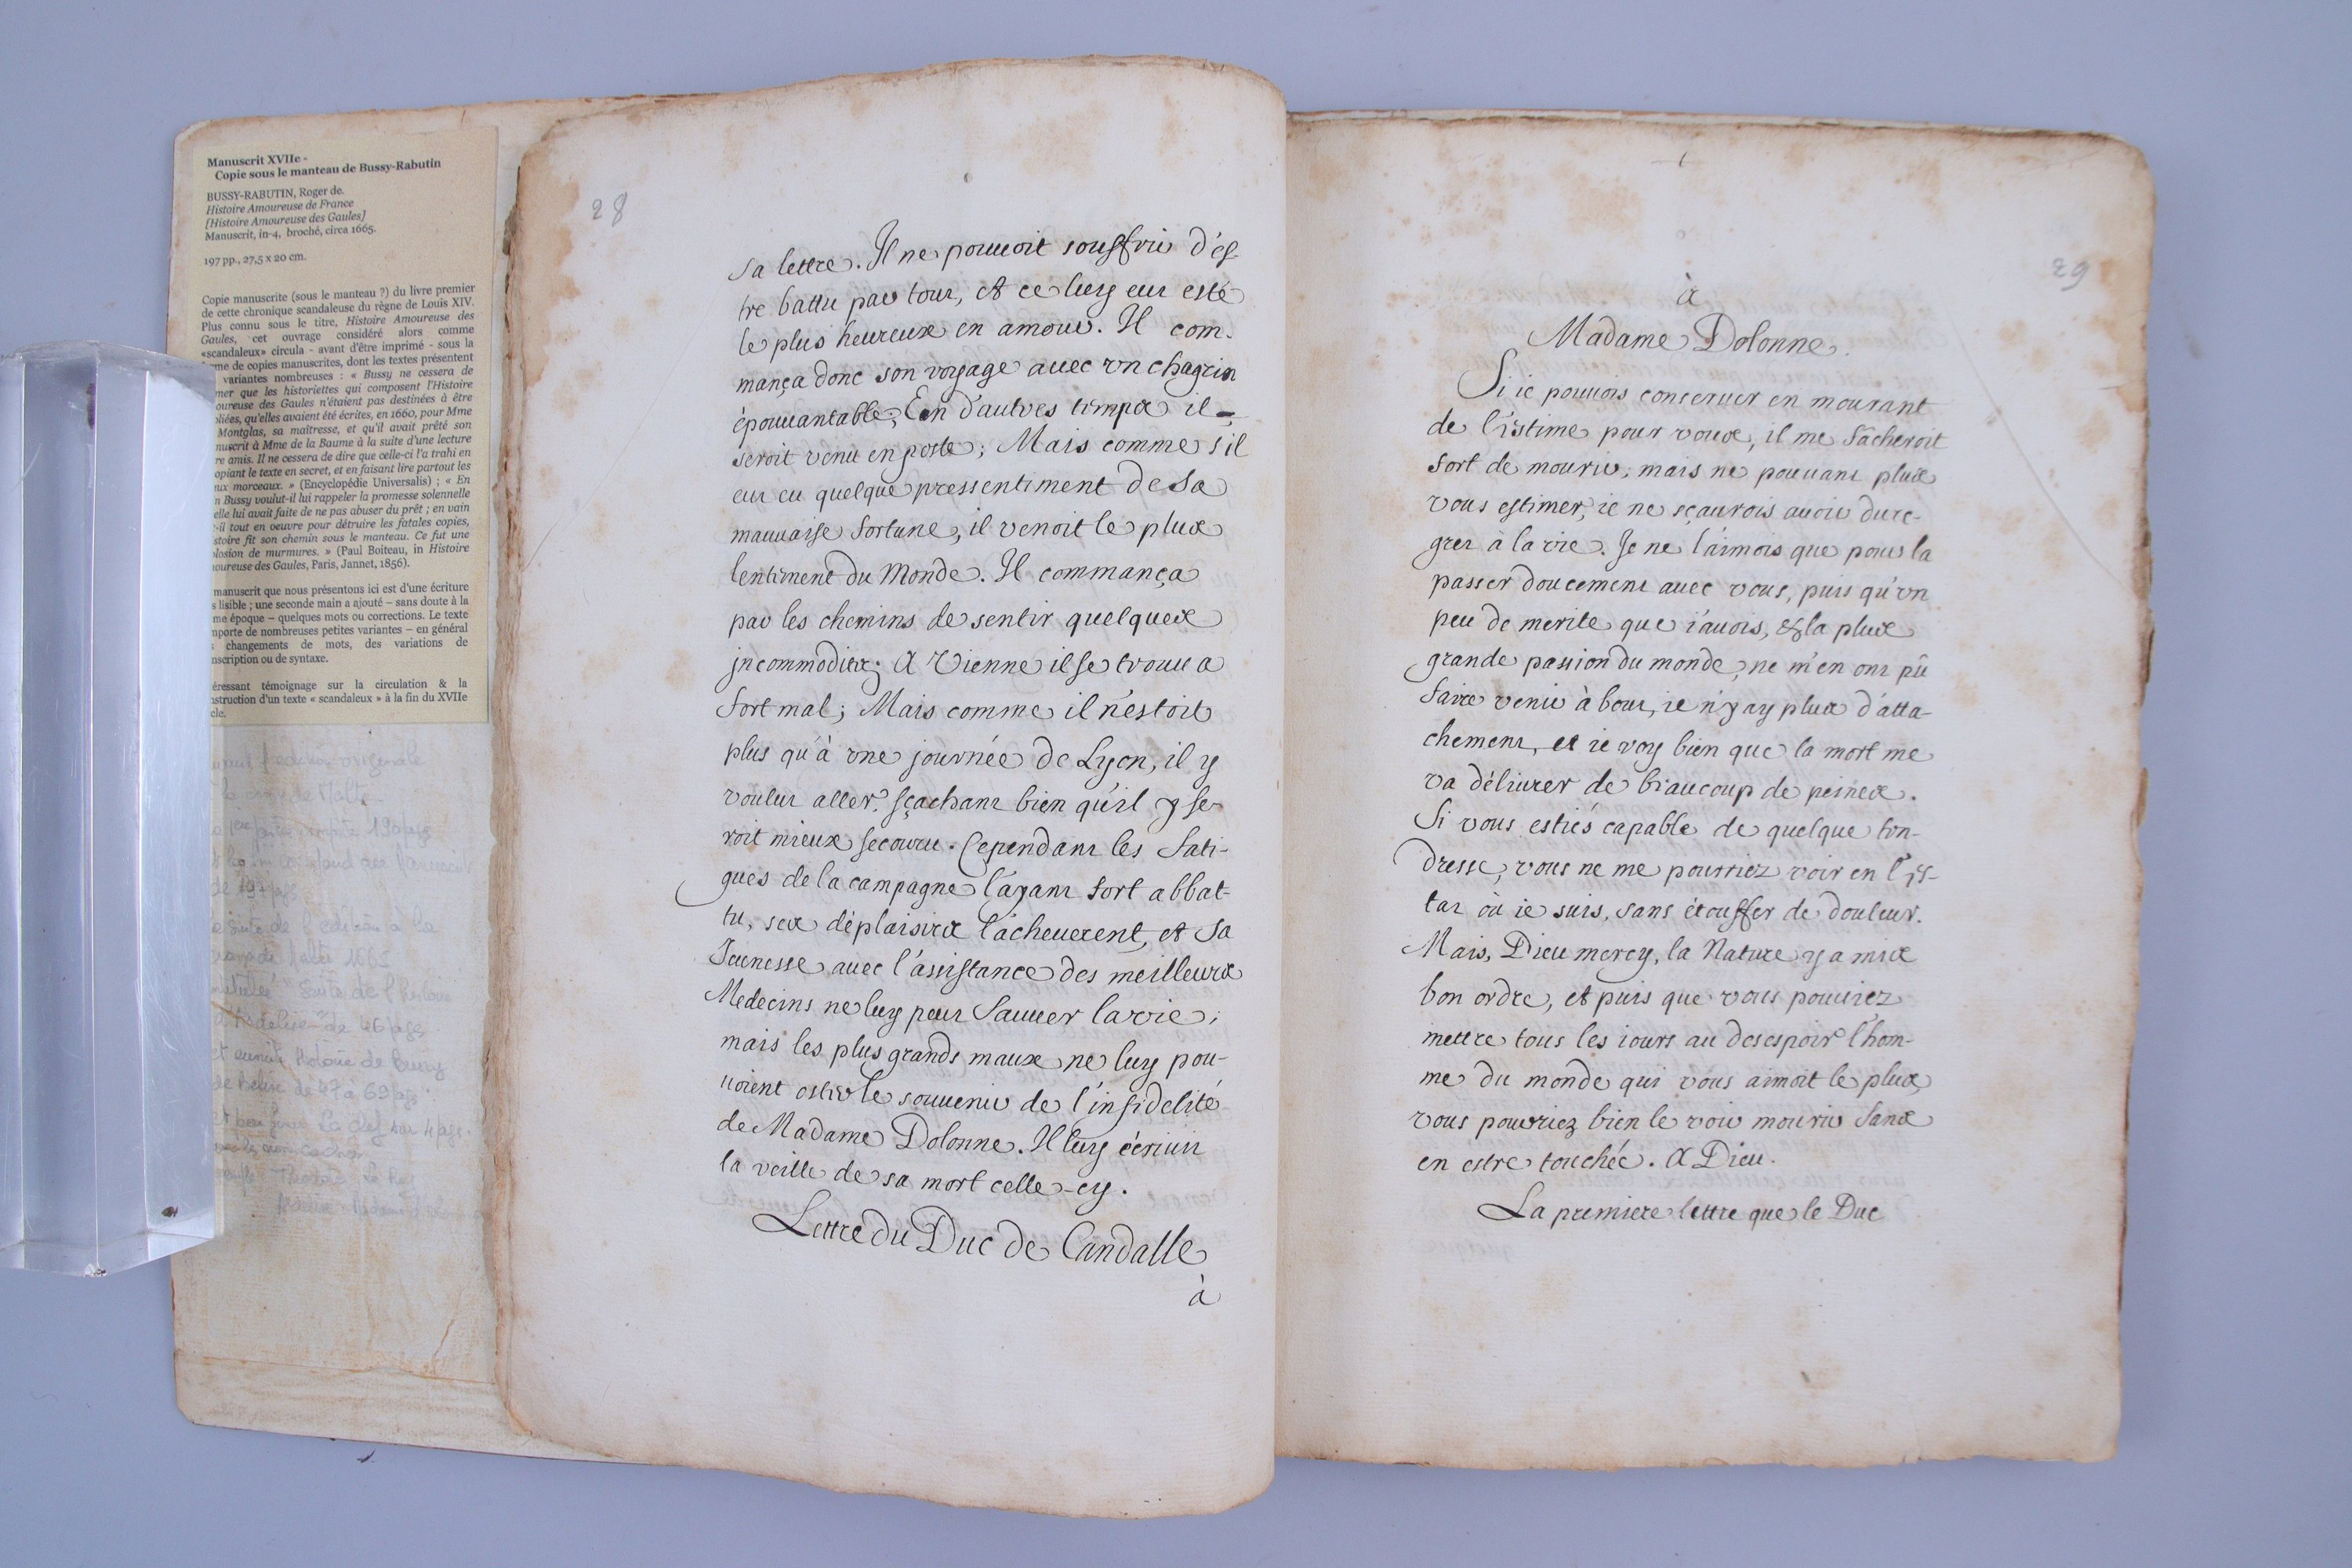 Manuscrit XVIIe -
Copie sous le manteau de Bussy-Rabutin
BUSSY-RABUTIN, Roger de.
Histoire Amoureuse de France
[Histoire Amoureuse des Gaules]
Manuscrit, in-4, broché, circa 1665.
197 pp., 27,5 x 20 cm.
Copie manuscrite (sous le manteau ?) du livre premier
de cette chronique scandaleuse du règne de Louis XIV.
Plus connu sous le titre, Histoire Amoureuse des
Gaules, cet ouvrage considéré alors comme
«scandaleux» circula - avant d'être imprimé - sous la
me de copies manuscrites, dont les textes présentent
variantes nombreuses : « Bussy ne cessera de
mer que les historiettes qui composent l'Histoire
oureuse des Gaules n'étaient pas destinées à être
bliées, qu'elles avaient été écrites, en 1660, pour Mme
Montglas, sa maîtresse, et qu'il avait prêté son
nuscrit à Mme de la Baume à la suite d'une lecture
re amis. Il ne cessera de dire que celle-ci l'a trahi en
opiant le texte en secret, et en faisant lire partout les
ux morceaux. » (Encyclopédie Universalis) ; « En
n Bussy voulut-il lui rappeler la promesse solennelle
elle lui avait faite de ne pas abuser du prêt ; en vain
-il tout en oeuvre pour détruire les fatales copies,
stoire fit son chemin sous le manteau. Ce fut une
losion de murmures. » (Paul Boiteau, in Histoire
oureuse des Gaules, Paris, Jannet, 1856).
manuscrit que nous présentons ici est d'une écriture
s lisible ; une seconde main a ajouté – sans doute à la
me époque – quelques mots ou corrections. Le texte
mporte de nombreuses petites variantes – en général
changements de mots, des variations de
nscription ou de syntaxe.
éressant témoignage sur la circulation & la
nstruction d'un texte « scandaleux » à la fin du XVIIe
cle.
edition originale
de Malte
190 pages
de 197 pages
suite de l'edition à la
de Malte 1665
suite de l'histoire
de 46 pages
de 47 à 69 pages
28
sa lettre. Il ne pouuoit souffrir d'es-
tre battu par tour, et ce luy eur esté
le plus heureux en amour. Il com-
mança donc son voyage auec vn chagrin
épouuantable; En d'autres temps il
seroit venu en poste; Mais comme s'il
eur eu quelque pressentiment de sa
mauuaise fortune, il venoit le plus
lentement du Monde. Il commança
par les chemins de sentir quelques
jncommoditez; A Vienne il se trouua
fort mal; Mais comme il n'estoit
plus qu'à vne journée de Lyon, il y
voulur aller, sçachanr bien qu'il y se-
roit mieux secouru. Cependanr les fati-
gues de la campagne l'ayanr fort abbat-
tu, ses déplaisirs l'acheuerent, et sa
Jeunesse auec l'assistance des meilleurs
Medecins ne luy peur sauuer la vie;
mais les plus grands maux ne luy pou-
uoient oster le souuenir de l'infidelité
de Madame Dolonne. Il luy écriuir
la veille de sa mort celle-cy.
Lettre du Duc de Candalle
à
29
à
Madame Dolonne.
Si ie pouuois conseruer en mourant
de l'estime pour vous, il me fâcheroit
fort de mourir; mais ne pouuanr plus
vous estimer, ie ne sçaurois auoir du re-
grer à la vie. Je ne l'aimois que pour la
passer doucemenr auec vous, puis qu'vn
peu de merite que i'auois, & la plus
grande passion du monde, ne m'en onr pû
faire venir à bour, ie n'y ay plus d'atta-
chemenr, et ie voy bien que la mort me
va déliurer de beaucoup de peines.
Si vous estiés capable de quelque ten-
dresse, vous ne me pourriez voir en l'es-
tar où ie suis, sans étouffer de douleur.
Mais, Dieu mercy, la Nature y a mis
bon ordre, et puis que vous pouuiez
mettre tous les iours au desespoir l'hom-
me du monde qui vous aimoit le plus,
vous pourriez bien le voir mourir sans
en estre touchée. A Dieu.
La premiere lettre que le Duc